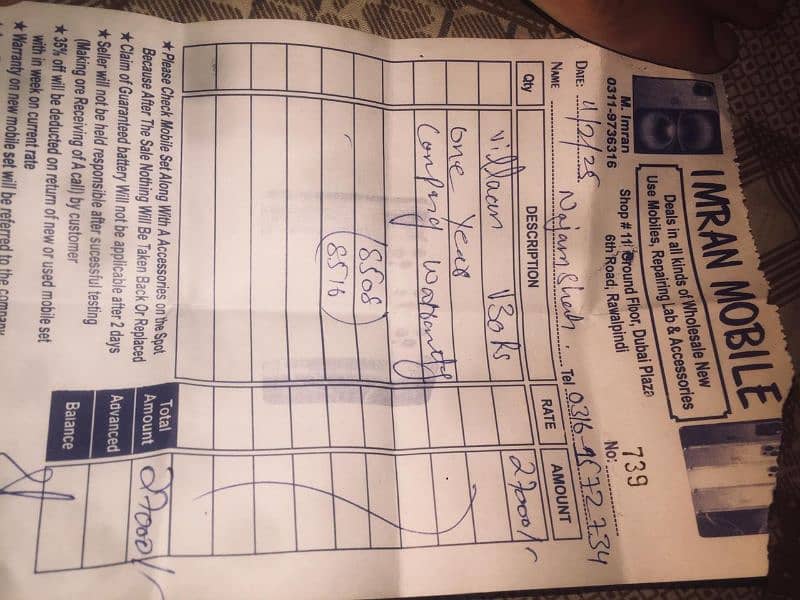 IMRAN MOBILE
Deals in all kinds of Wholesale New
Use Mobiles, Repairing Lab & Accessories
M. Imran
0311-9736316
Shop # 11 Ground Floor, Dubai Plaza
6th Road, Rawalpindi
No: 739
DATE: 11/2/25
NAME Najam Shah Tel
Qty DESCRIPTION RATE AMOUNT
V30 27000/-
one Year
Warranty
8508
8516
Total Amount 27000/-
Advanced
Balance
★ Please Check Mobile Set Along With A Accessories on the Spot
Because After The Sale Nothing Will Be Taken Back Or Replaced
★ Claim of Guaranteed battery Will not be applicable after 2 days
★ Seller will not be held responsible after sucessful testing
(Making ore Receiving of A call) by customer
★ 35% off will be deducted on return of new or used mobile set
with in week on current rate
★ Warranty on new mobile set will be referred to the company